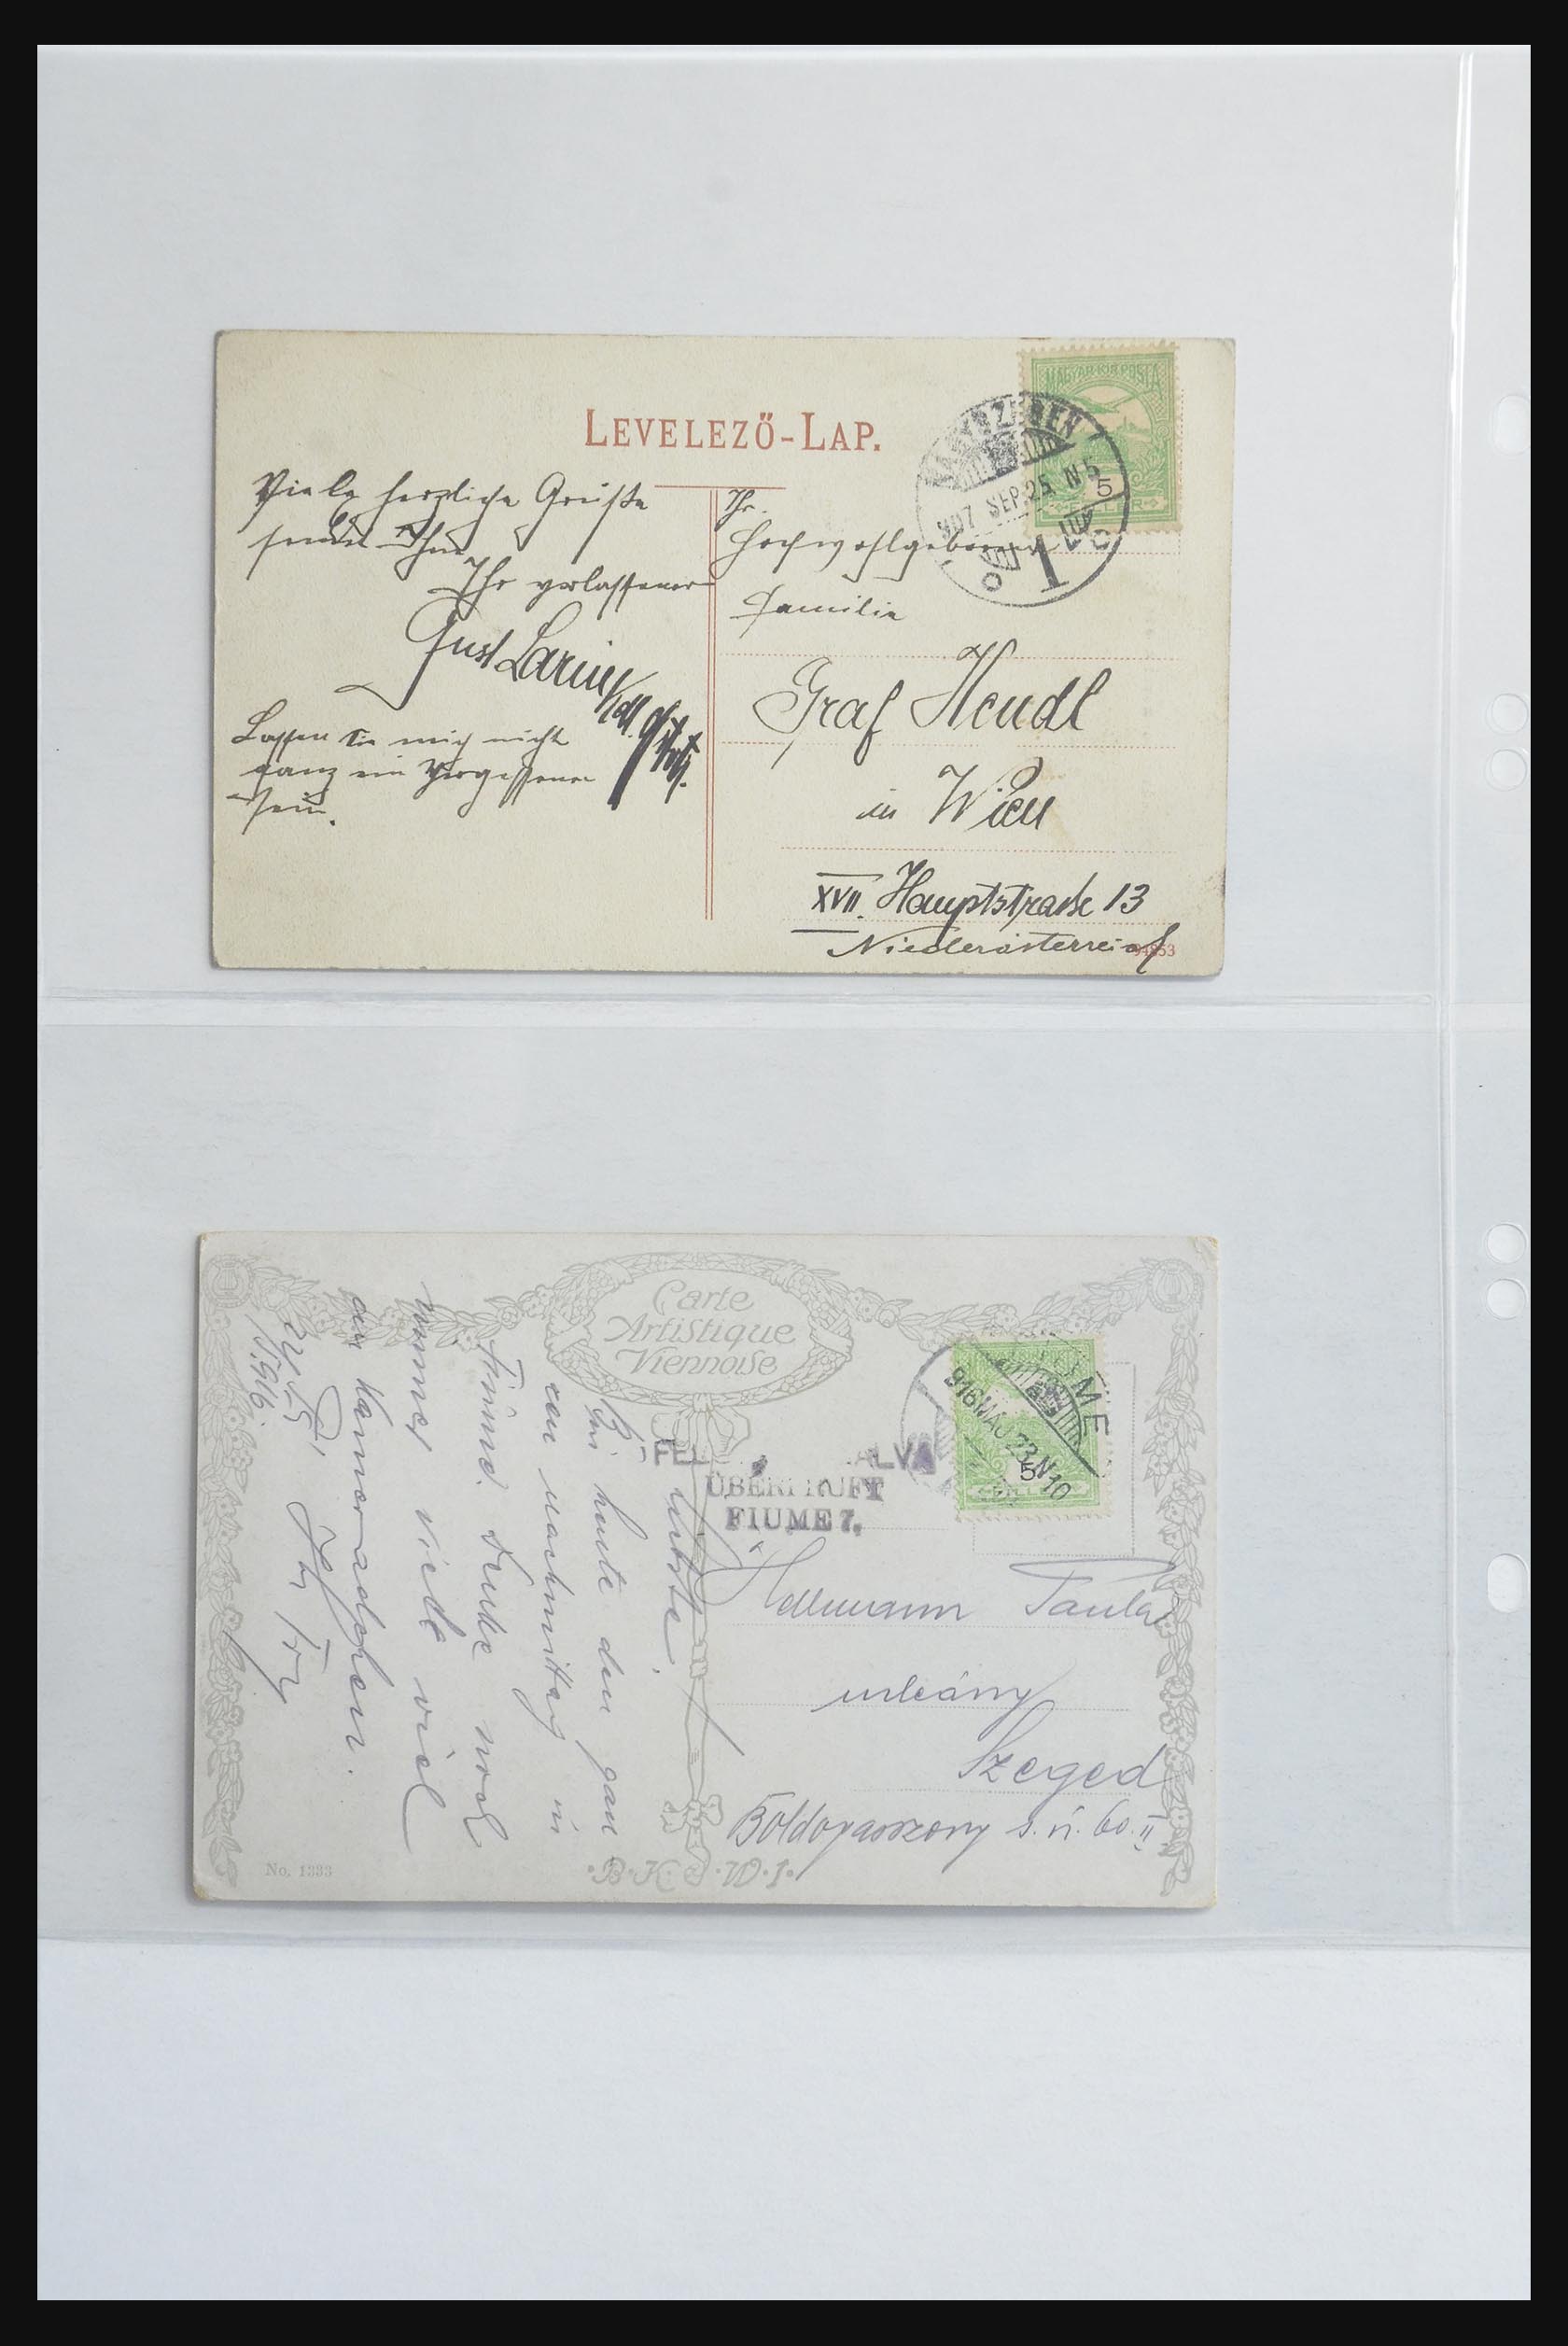 LEVELEZŐ-LAP.
MAGYAR KIR. POSTA
NAGYSZEBEN
907 SEP. 25. N 5
5
FILLÉR
1
Viele herzliche Grüße
sendet Ihnen
Ihr verlassener
Gust
Lassen Sie mich nicht
ganz ein Vergessener
sein.
Ihr.
Hochwohlgeboren
Familie
Graf Hendl
in Wien
XVII. Hauptstrasse 13
Niederösterreich
94853
Carte
Artistique
Viennoise
FIUME
916 MÁJ 23 N 10
5
FEL ALVA
ÜBERPRÜFT
FIUME 7.
Liebste.
Bin heute den gan
zen nachmittag in
Fiume. Denke noch
immer viel viel
an Kameradchen.
1916.
Hellmann Paula
urleány
Szeged
Boldogasszony s. ú. 60. II
No. 1333
B.K.W.I.